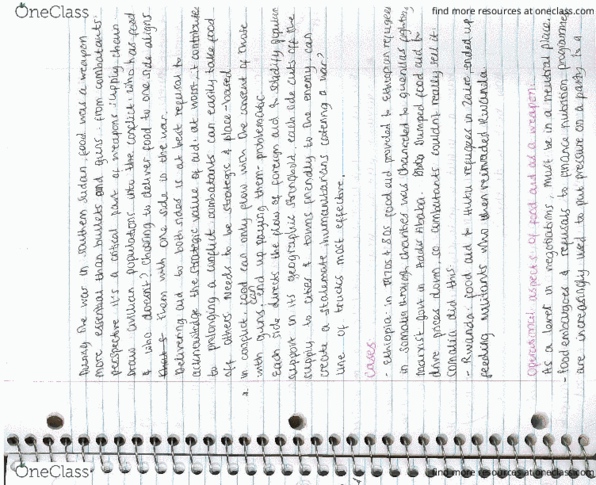 OneClass
find more resources at oneclass.com
During the war in southern Sudan, food was a weapon
more essential than bullets and guns. From combatants'
perspective it's a critical part of weapons supply chain
Draw civilian populations into the conflict: who has food
& who doesn't? Choosing to deliver food to one side aligns
them with one side in the war.
Delivering aid to both sides is at best refusal to
acknowledge the strategic value of aid, at worst it contributes
to prolonging a conflict. Combatants can easily take food
off others. Needs to be strategic & place-based
2. In conflict, food can only flow with the consent of those
with guns and can end up helping them - problematic
Each side directs the flow of foreign aid to solidify
support in its geographic stronghold, each side cuts off the
supply to cities & towns friendly to the enemy; can
create a stalemate. Humanitarians catering a war?
Line of trucks most effective.
Cases
- Ethiopia in 1970s & 80s food aid provided to Ethiopian refugees
in Somalia through charities was channeled to guerillas fighting
Marxist govt in Addis Ababa. Dumped food aid to
drive prices down so combatants couldn't really sell it.
Somalia did this.
- Rwanda: food aid to Hutu refugees in Zaire ended up
feeding militants who then reinvaded Rwanda
Operational aspects of food aid as a weapon
As a lever in negotiations, must be in a neutral place.
- Food embargoes & refusals to finance nutrition programmes
are increasingly used to put pressure on a party in a
OneClass
find more resources at oneclass.com